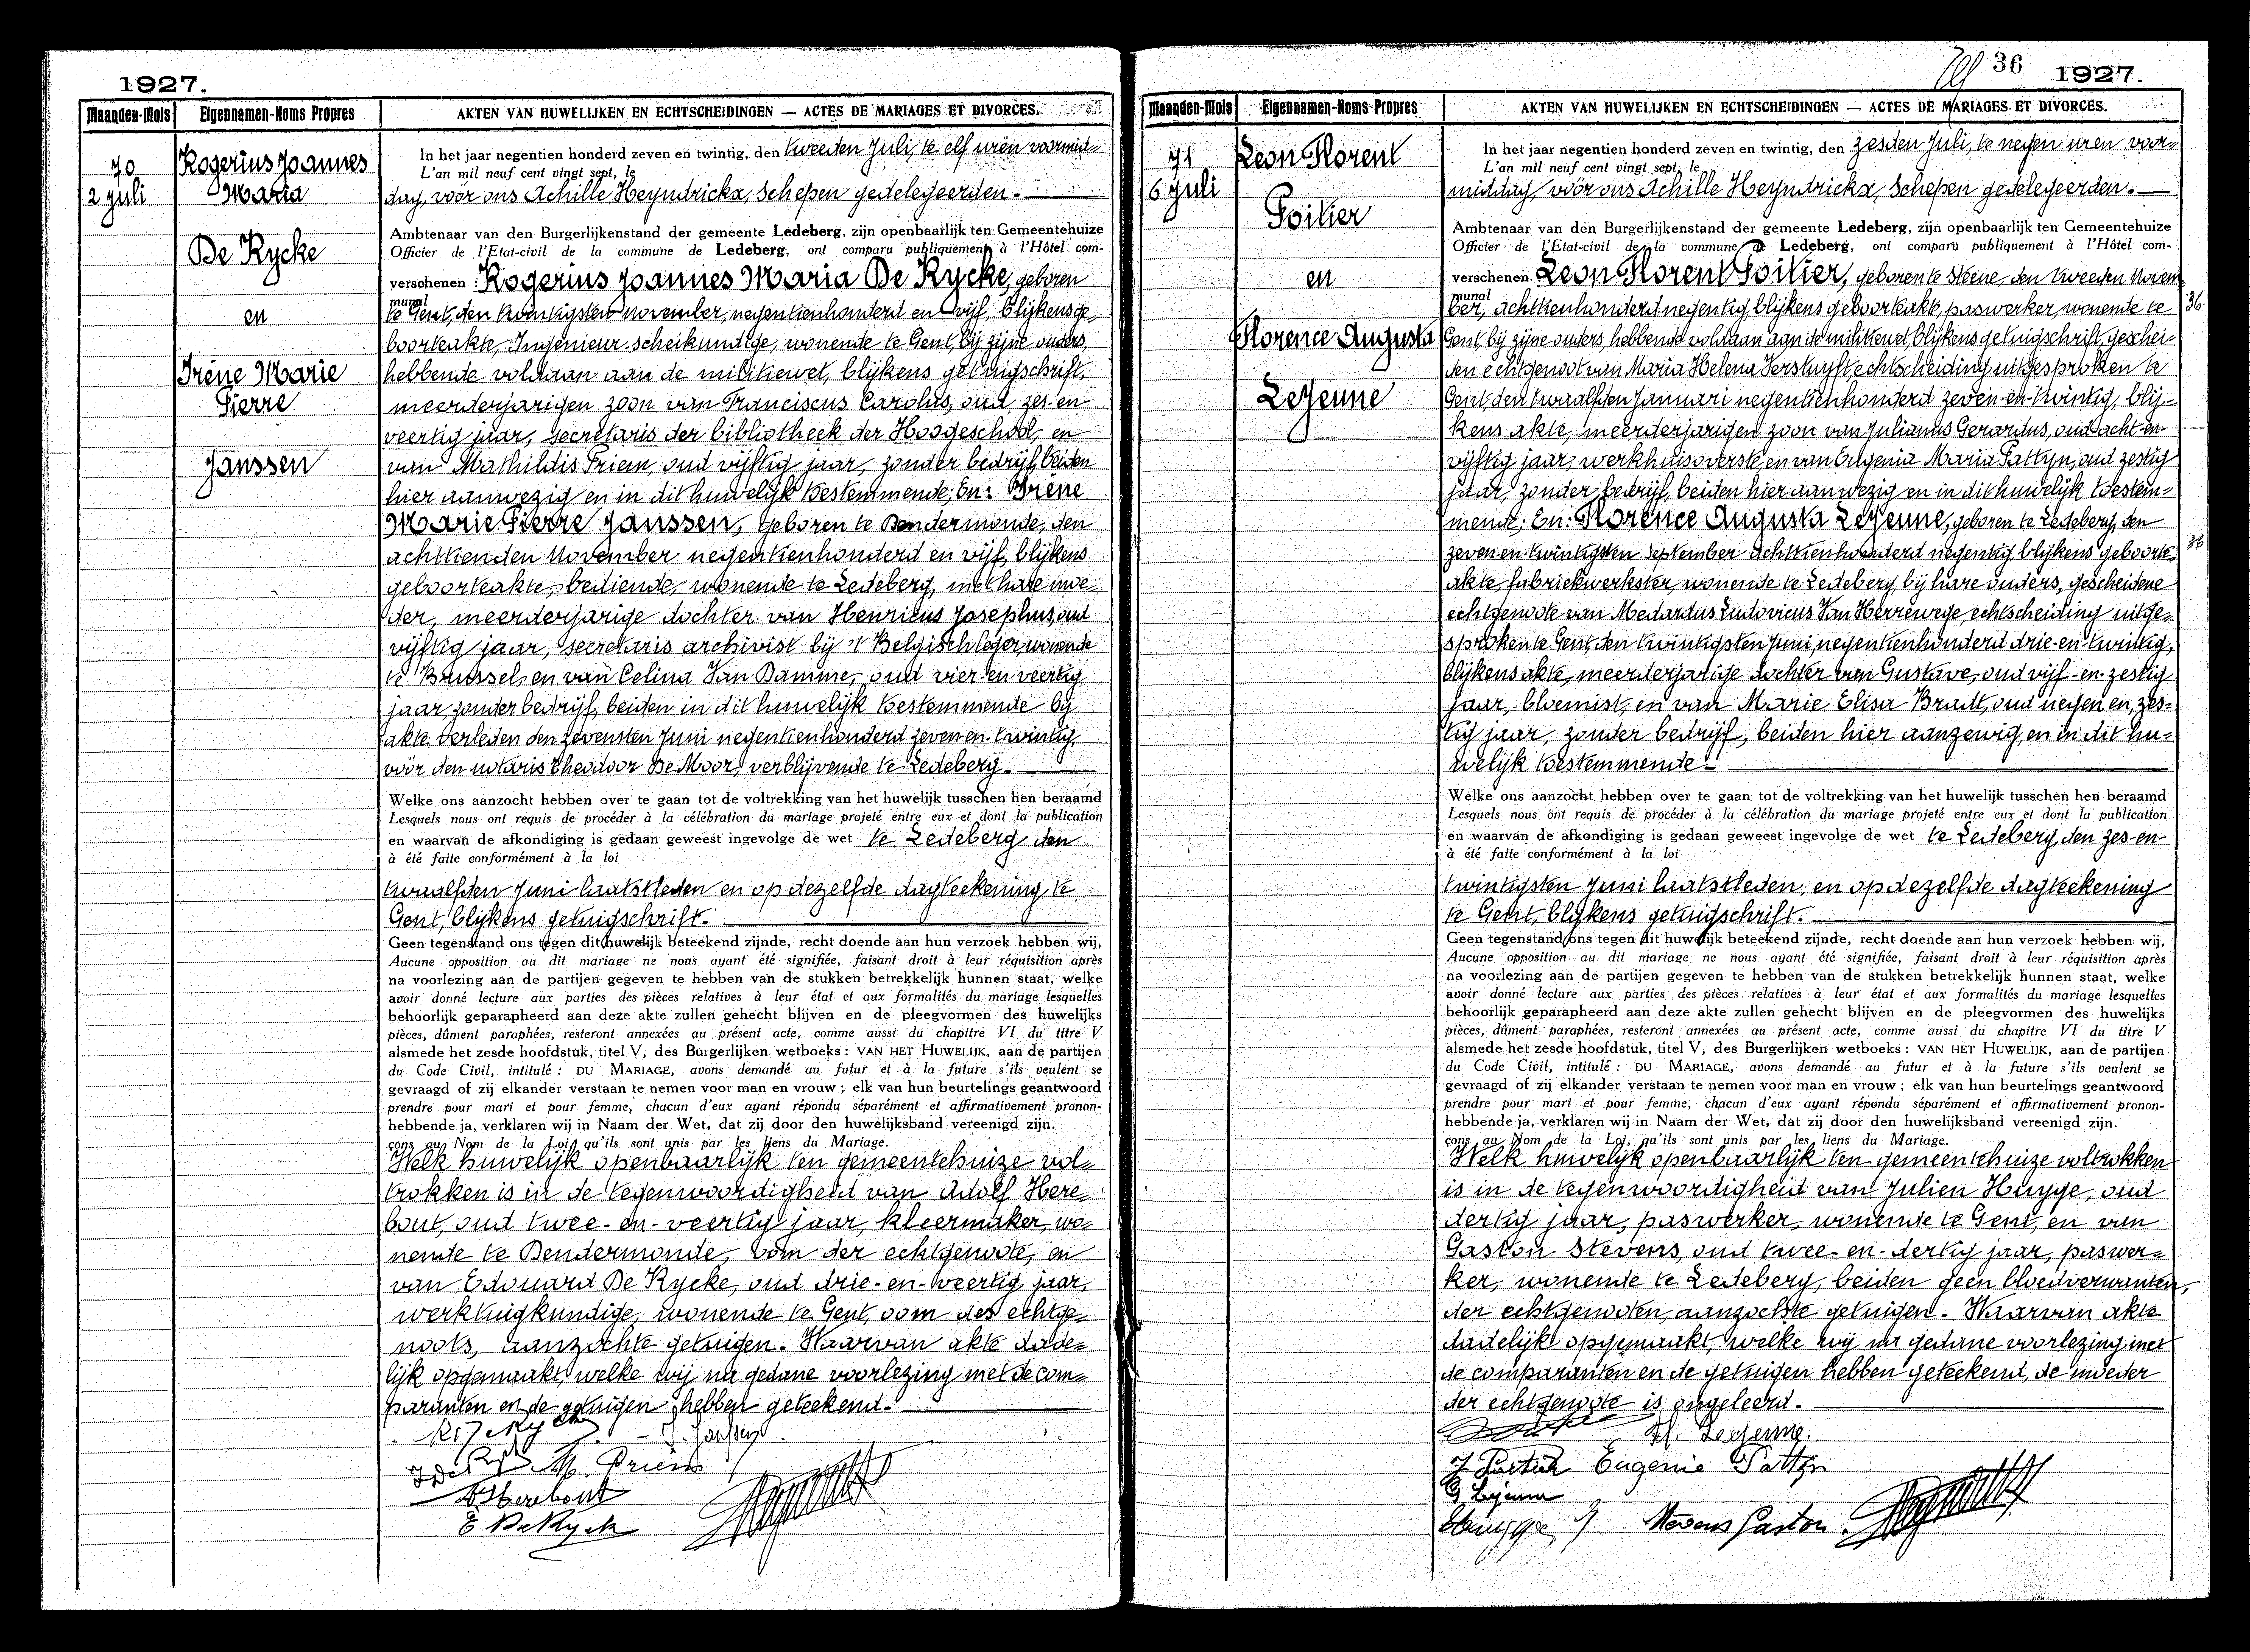 1927.
Maanden-Mois
Eigennamen-Noms Propres
AKTEN VAN HUWELIJKEN EN ECHTSCHEIDINGEN — ACTES DE MARIAGES ET DIVORCES.
70
2 Juli
Rogerius Joannes
Maria
De Rycke
en
Irène Marie
Pierre
Janssen
In het jaar negentien honderd zeven en twintig, den tweeden Juli, te elf uren voormid=
L'an mil neuf cent vingt sept, le
dag, vóór ons Achille Heyndrickx, Schepen gedelegeerden.
Ambtenaar van den Burgerlijkenstand der gemeente Ledeberg, zijn openbaarlijk ten Gemeentehuize
Officier de l'Etat-civil de la commune de Ledeberg, ont comparu publiquement à l'Hôtel com-
verschenen : Rogerius Joannes Maria De Rycke, geboren
munal
te Gent, den twintigsten november, negentienhonderd en vijf, blijkens ge=
boorteakte, Ingenieur-scheikundige, wonende te Gent, bij zijne ouders,
hebbende voldaan aan de militiewet, blijkens getuigschrift,
meerderjarigen zoon van Franciscus Carolus, oud zes-en
veertig jaar, secretaris der bibliotheek der Hoogeschool, en
van Mathildis Priem, oud vijftig jaar, zonder bedrijf, beiden
hier aanwezig en in dit huwelijk toestemmende; En: Irène
Marie Pierre Janssen, geboren te Dendermonde, den
achttienden November negentienhonderd en vijf, blijkens
geboorteakte, bediende, wonende te Ledeberg, met hare moe=
der, meerderjarige dochter van Henricus Josephus, oud
vijftig jaar, secretaris archivist bij 't Belgisch leger, wonende
te Brussel, en van Celina Van Damme, oud vier-en-veertig
jaar, zonder bedrijf, beiden in dit huwelijk toestemmende bij
akte verleden den zevensten Juni negentienhonderd zeven-en-twintig,
vóór den notaris Theodoor De Moor, verblijvende te Ledeberg.
Welke ons aanzocht hebben over te gaan tot de voltrekking van het huwelijk tusschen hen beraamd
Lesquels nous ont requis de procéder à la célébration du mariage projeté entre eux et dont la publication
en waarvan de afkondiging is gedaan geweest ingevolge de wet te Ledeberg den
à été faite conformément à la loi
twaalfden Juni laatstleden en op dezelfde dagteekening te
Gent, blijkens getuigschrift.
Geen tegenstand ons tegen dit huwelijk beteekend zijnde, recht doende aan hun verzoek hebben wij,
Aucune opposition au dit mariage ne nous ayant été signifiée, faisant droit à leur réquisition après
na voorlezing aan de partijen gegeven te hebben van de stukken betrekkelijk hunnen staat, welke
avoir donné lecture aux parties des pièces relatives à leur état et aux formalités du mariage lesquelles
behoorlijk geparapheerd aan deze akte zullen gehecht blijven en de pleegvormen des huwelijks
pièces, dûment paraphées, resteront annexées au présent acte, comme aussi du chapitre VI du titre V
alsmede het zesde hoofdstuk, titel V, des Burgerlijken wetboeks : VAN HET HUWELIJK, aan de partijen
du Code Civil, intitulé : DU MARIAGE, avons demandé au futur et à la future s'ils veulent se
gevraagd of zij elkander verstaan te nemen voor man en vrouw ; elk van hun beurtelings geantwoord
prendre pour mari et pour femme, chacun d'eux ayant répondu séparément et affirmativement pronon-
hebbende ja, verklaren wij in Naam der Wet, dat zij door den huwelijksband vereenigd zijn.
çons au Nom de la Loi, qu'ils sont unis par les liens du Mariage.
Welk huwelijk openbaarlijk ten gemeentehuize vol=
trokken is in de tegenwoordigheid van Adolf Here=
bout, oud twee-en-veertig jaar, kleermaker, wo=
nende te Dendermonde, oom der echtgenoote, en
van Edouard De Rycke, oud drie-en-veertig jaar,
werktuigkundige, wonende te Gent, oom des echtge=
noots, aanzochte getuigen. Waarvan akte dade=
lijk opgemaakt, welke wij na gedane voorlezing met de com=
paranten en de getuigen hebben geteekend.
I. Janssen
M. Priem
A Herebout
E De Rycke
36
1927.
Maanden-Mois
Eigennamen-Noms Propres
AKTEN VAN HUWELIJKEN EN ECHTSCHEIDINGEN — ACTES DE MARIAGES ET DIVORCES.
71
6 Juli
Leon Florent
Poitier
en
Florence Augusta
LeJeune
In het jaar negentien honderd zeven en twintig, den zesden Juli, te negen uren voor=
L'an mil neuf cent vingt sept, le
middag, vóór ons Achille Heyndrickx, Schepen gedelegeerden.
Ambtenaar van den Burgerlijkenstand der gemeente Ledeberg, zijn openbaarlijk ten Gemeentehuize
Officier de l'Etat-civil de la commune de Ledeberg, ont comparu publiquement à l'Hôtel com-
verschenen Leon Florent Poitier, geboren te Steene, den tweeden Novem
munal
ber, achttienhonderd negentig, blijkens geboorteakte, paswerker, wonende te
36
Gent, bij zijne ouders, hebbende voldaan aan de militiewet, blijkens getuigschrift, geschei=
den echtgenoot van Maria Helena Verstuyft, echtscheiding uitgesproken te
Gent, den twaalfden Januari negentienhonderd zeven-en-twintig, blij=
kens akte, meerderjarigen zoon van Julianus Gerardus, oud acht-en-
vijftig jaar, werkhuisoverste, en van Eugenia Maria Pattyn, oud zestig
jaar, zonder bedrijf, beiden hier aanwezig en in dit huwelijk toestem=
mende; En: Florence Augusta LeJeune, geboren te Ledeberg, den
zeven-en-twintigsten September achttienhonderd negentig, blijkens geboorte=
36
akte, fabriekwerkster, wonende te Ledeberg, bij hare ouders, gescheidene
echtgenoote van Medardus Ludovicus Van Herrewege, echtscheiding uitge=
sproken te Gent, den twintigsten Juni negentienhonderd drie-en-twintig,
blijkens akte, meerderjarige dochter van Gustave, oud vijf-en-zestig
jaar, bloemist, en van Marie Elisa Bradt, oud negen en zes=
tig jaar, zonder bedrijf, beiden hier aanzewig, en in dit hu=
welijk toestemmende.
Welke ons aanzocht hebben over te gaan tot de voltrekking van het huwelijk tusschen hen beraamd
Lesquels nous ont requis de procéder à la célébration du mariage projeté entre eux et dont la publication
en waarvan de afkondiging is gedaan geweest ingevolge de wet te Ledeberg, den zes-en-
à été faite conformément à la loi
twintigsten Juni laatstleden, en op dezelfde dagteekening
te Gent, blijkens getuigschrift.
Geen tegenstand ons tegen dit huwelijk beteekend zijnde, recht doende aan hun verzoek hebben wij,
Aucune opposition au dit mariage ne nous ayant été signifiée, faisant droit à leur réquisition après
na voorlezing aan de partijen gegeven te hebben van de stukken betrekkelijk hunnen staat, welke
avoir donné lecture aux parties des pièces relatives à leur état et aux formalités du mariage lesquelles
behoorlijk geparapheerd aan deze akte zullen gehecht blijven en de pleegvormen des huwelijks
pièces, dûment paraphées, resteront annexées au présent acte, comme aussi du chapitre VI du titre V
alsmede het zesde hoofdstuk, titel V, des Burgerlijken wetboeks : VAN HET HUWELIJK, aan de partijen
du Code Civil, intitulé : DU MARIAGE, avons demandé au futur et à la future s'ils veulent se
gevraagd of zij elkander verstaan te nemen voor man en vrouw ; elk van hun beurtelings geantwoord
prendre pour mari et pour femme, chacun d'eux ayant répondu séparément et affirmativement pronon-
hebbende ja, verklaren wij in Naam der Wet, dat zij door den huwelijksband vereenigd zijn.
çons au Nom de la Loi, qu'ils sont unis par les liens du Mariage.
Welk huwelijk openbaarlijk ten gemeentehuize voltrokken
is in de tegenwoordigheid van Julien Huyge, oud
dertig jaar, paswerker, wonende te Gent, en van
Gaston Stevens, oud twee-en-dertig jaar, paswer=
ker, wonende te Ledeberg, beiden geen bloedverwanten,
der echtgenooten, aanzochte getuigen. Waarvan akte
dadelijk opgemaakt, welke wij na gedane voorlezing met
de comparanten en de getuigen hebben geteekend, de moeder
der echtgenoote is ongeleerd.
Fl. Lejeune.
Eugenie Pattyn
G Lejeune
Stevens Gaston.